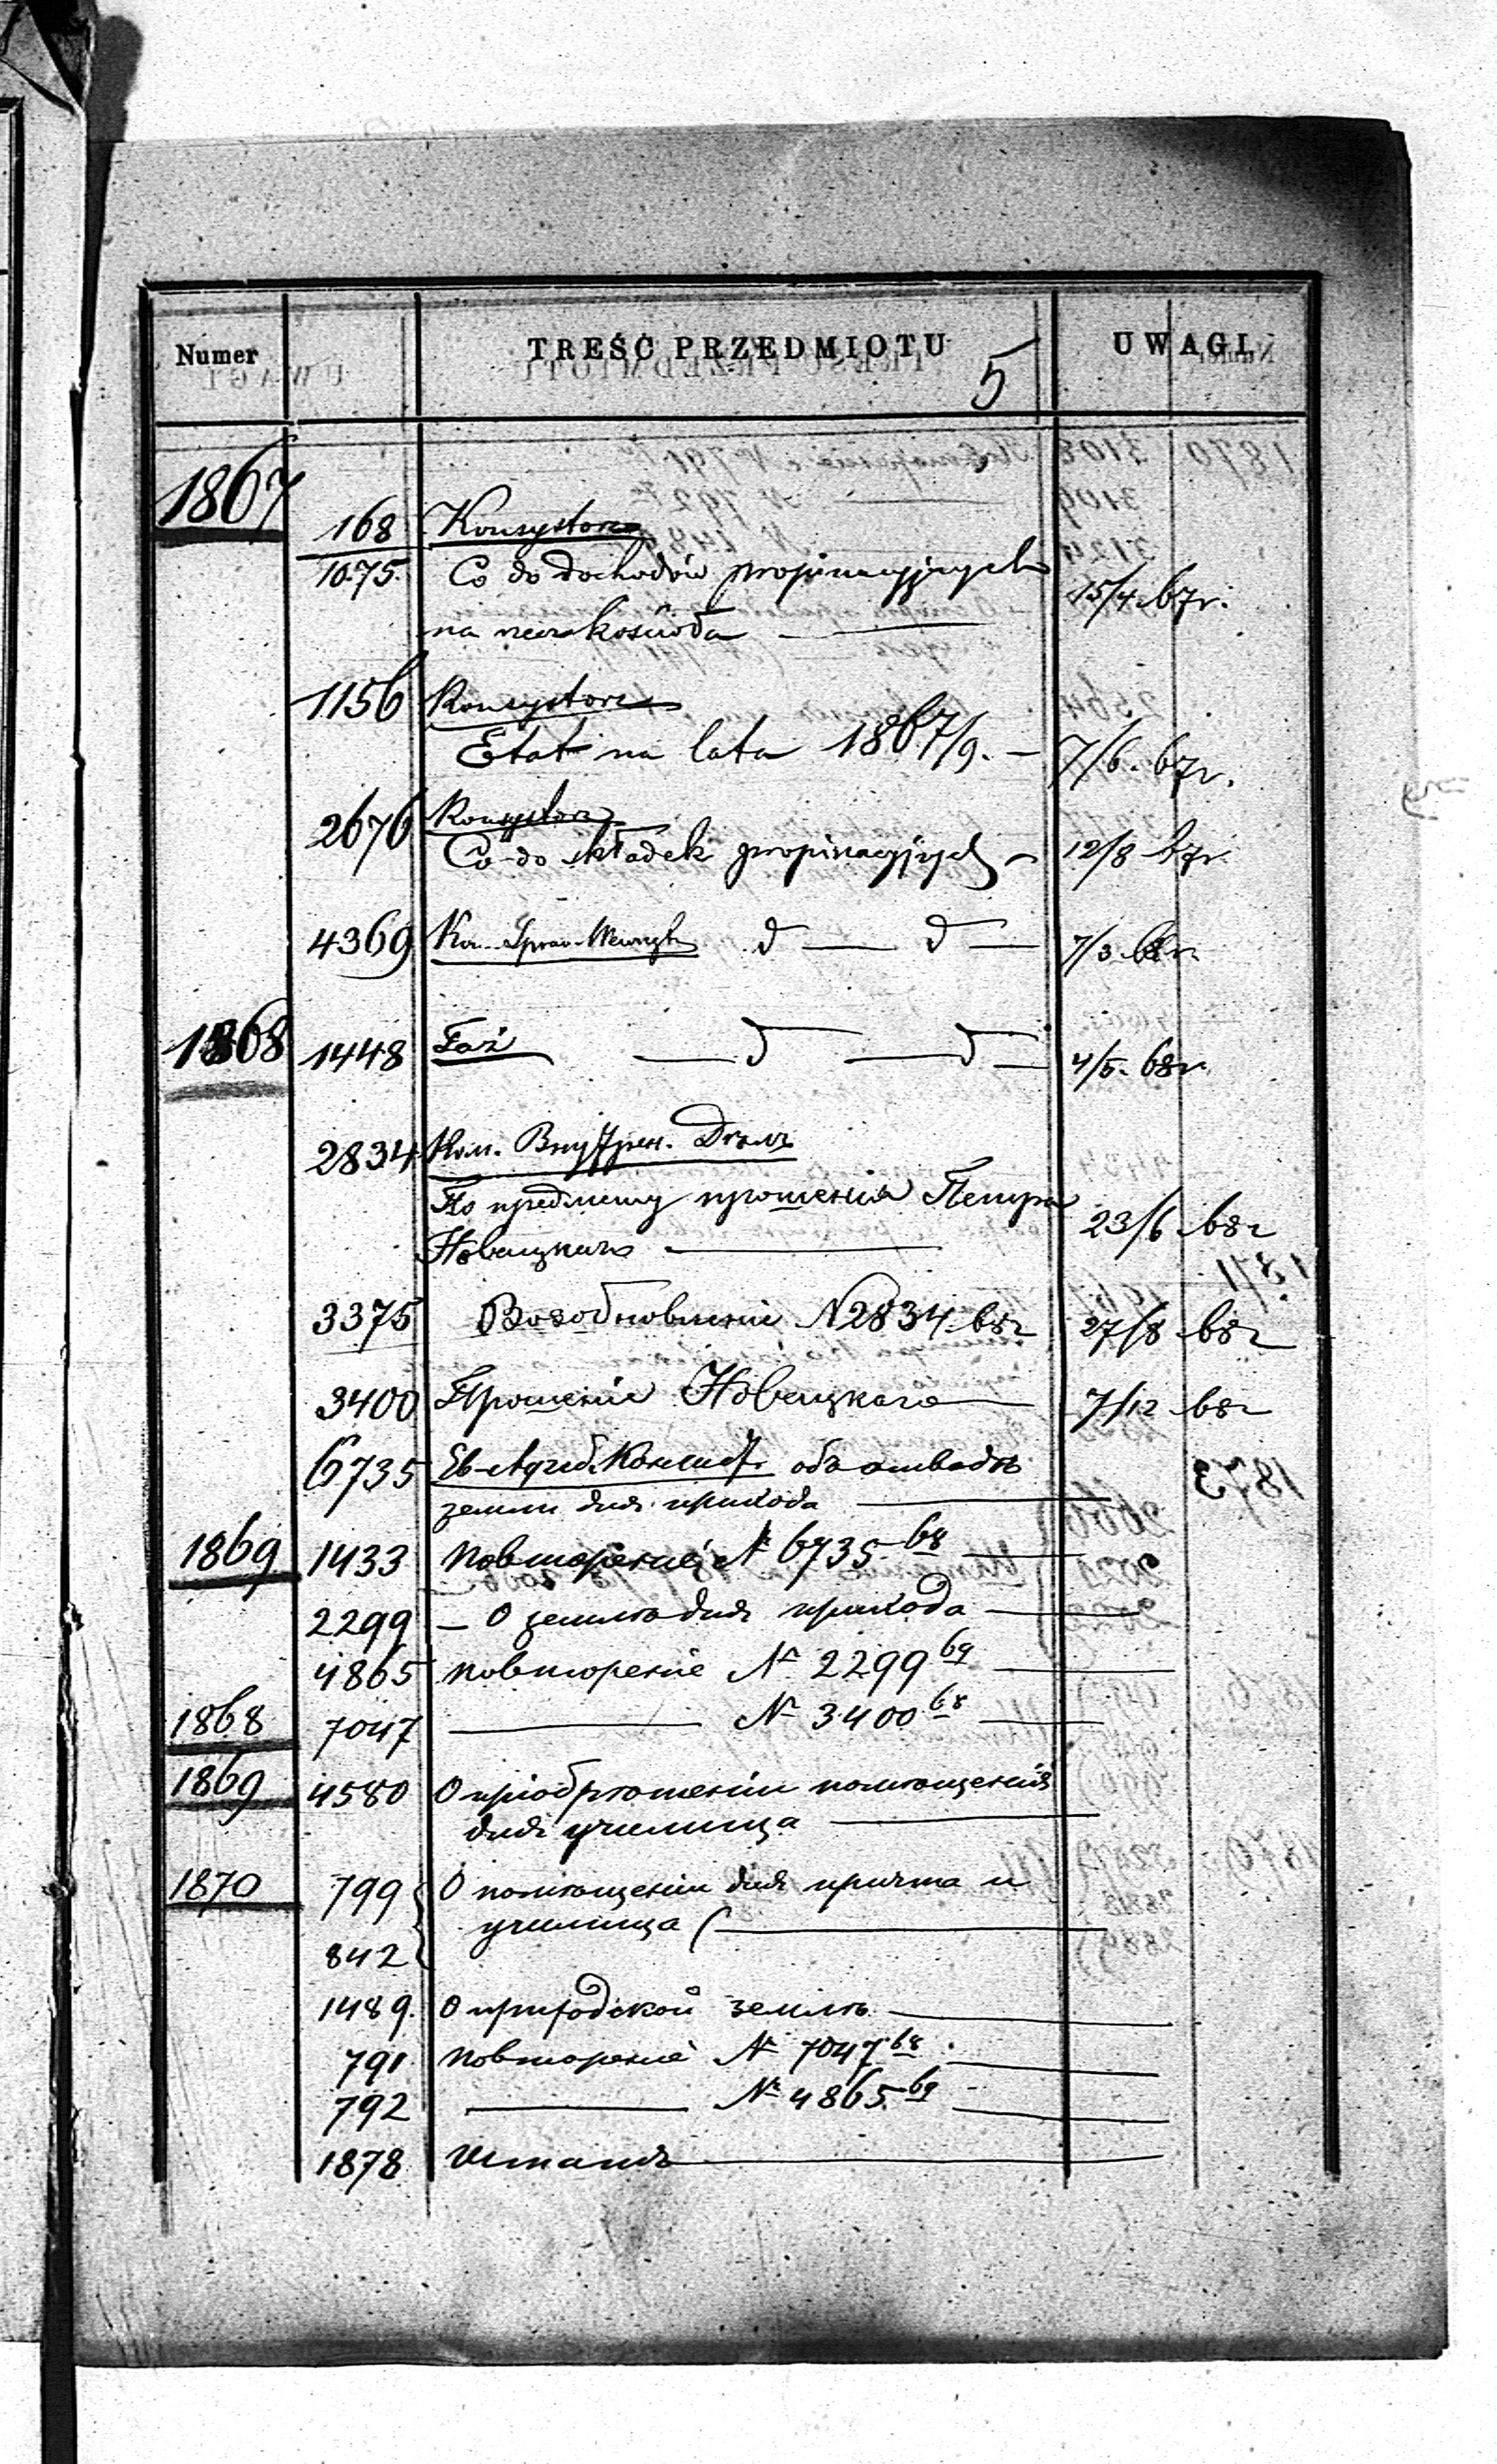 Numer TREŚĆ PRZEDMIOTU UWAGI
5
1867
168 Konsystorz
1075. Co do dochodów propinacyjnych 15/4 67r.
na rzecz kościoła
1156 Konsystorz
Etat na lata 1867/9. — 7/6. 67r.
2676 Konsystorz
Co do składek propinacyjnych — 12/8 67r.
4369 Kom. Spraw Wewnęt d — d — 7/3 68r.
1868 1448 Taż — d — d — 4/5. 68r.
2834 Ком. Внутрен. Дѣлъ
По предмету прошенія Петра 23/6 68г
Новицкаго —
3375 Возобновленіе N2834 68г 27/8 68г
3400 Прошеніе Новицкаго — 7/12 68г
6735 Ев-Аугсб. Консист. объ отводѣ
земли для прихода —
1869 1433 Повтореніе № 6735 68 —
2299 — О землѣ для прихода —
4865 повтореніе № 2299 69 —
1868 7047 — № 3400 68 —
1869 4580 О пріобрѣтеніи помѣщенія
для училища —
1870 799 О помѣщеніи для причта и
училища —
842
1489. О приходской землѣ —
791 Повтореніе № 7047 68 —
792 — № 4865 69 —
1878